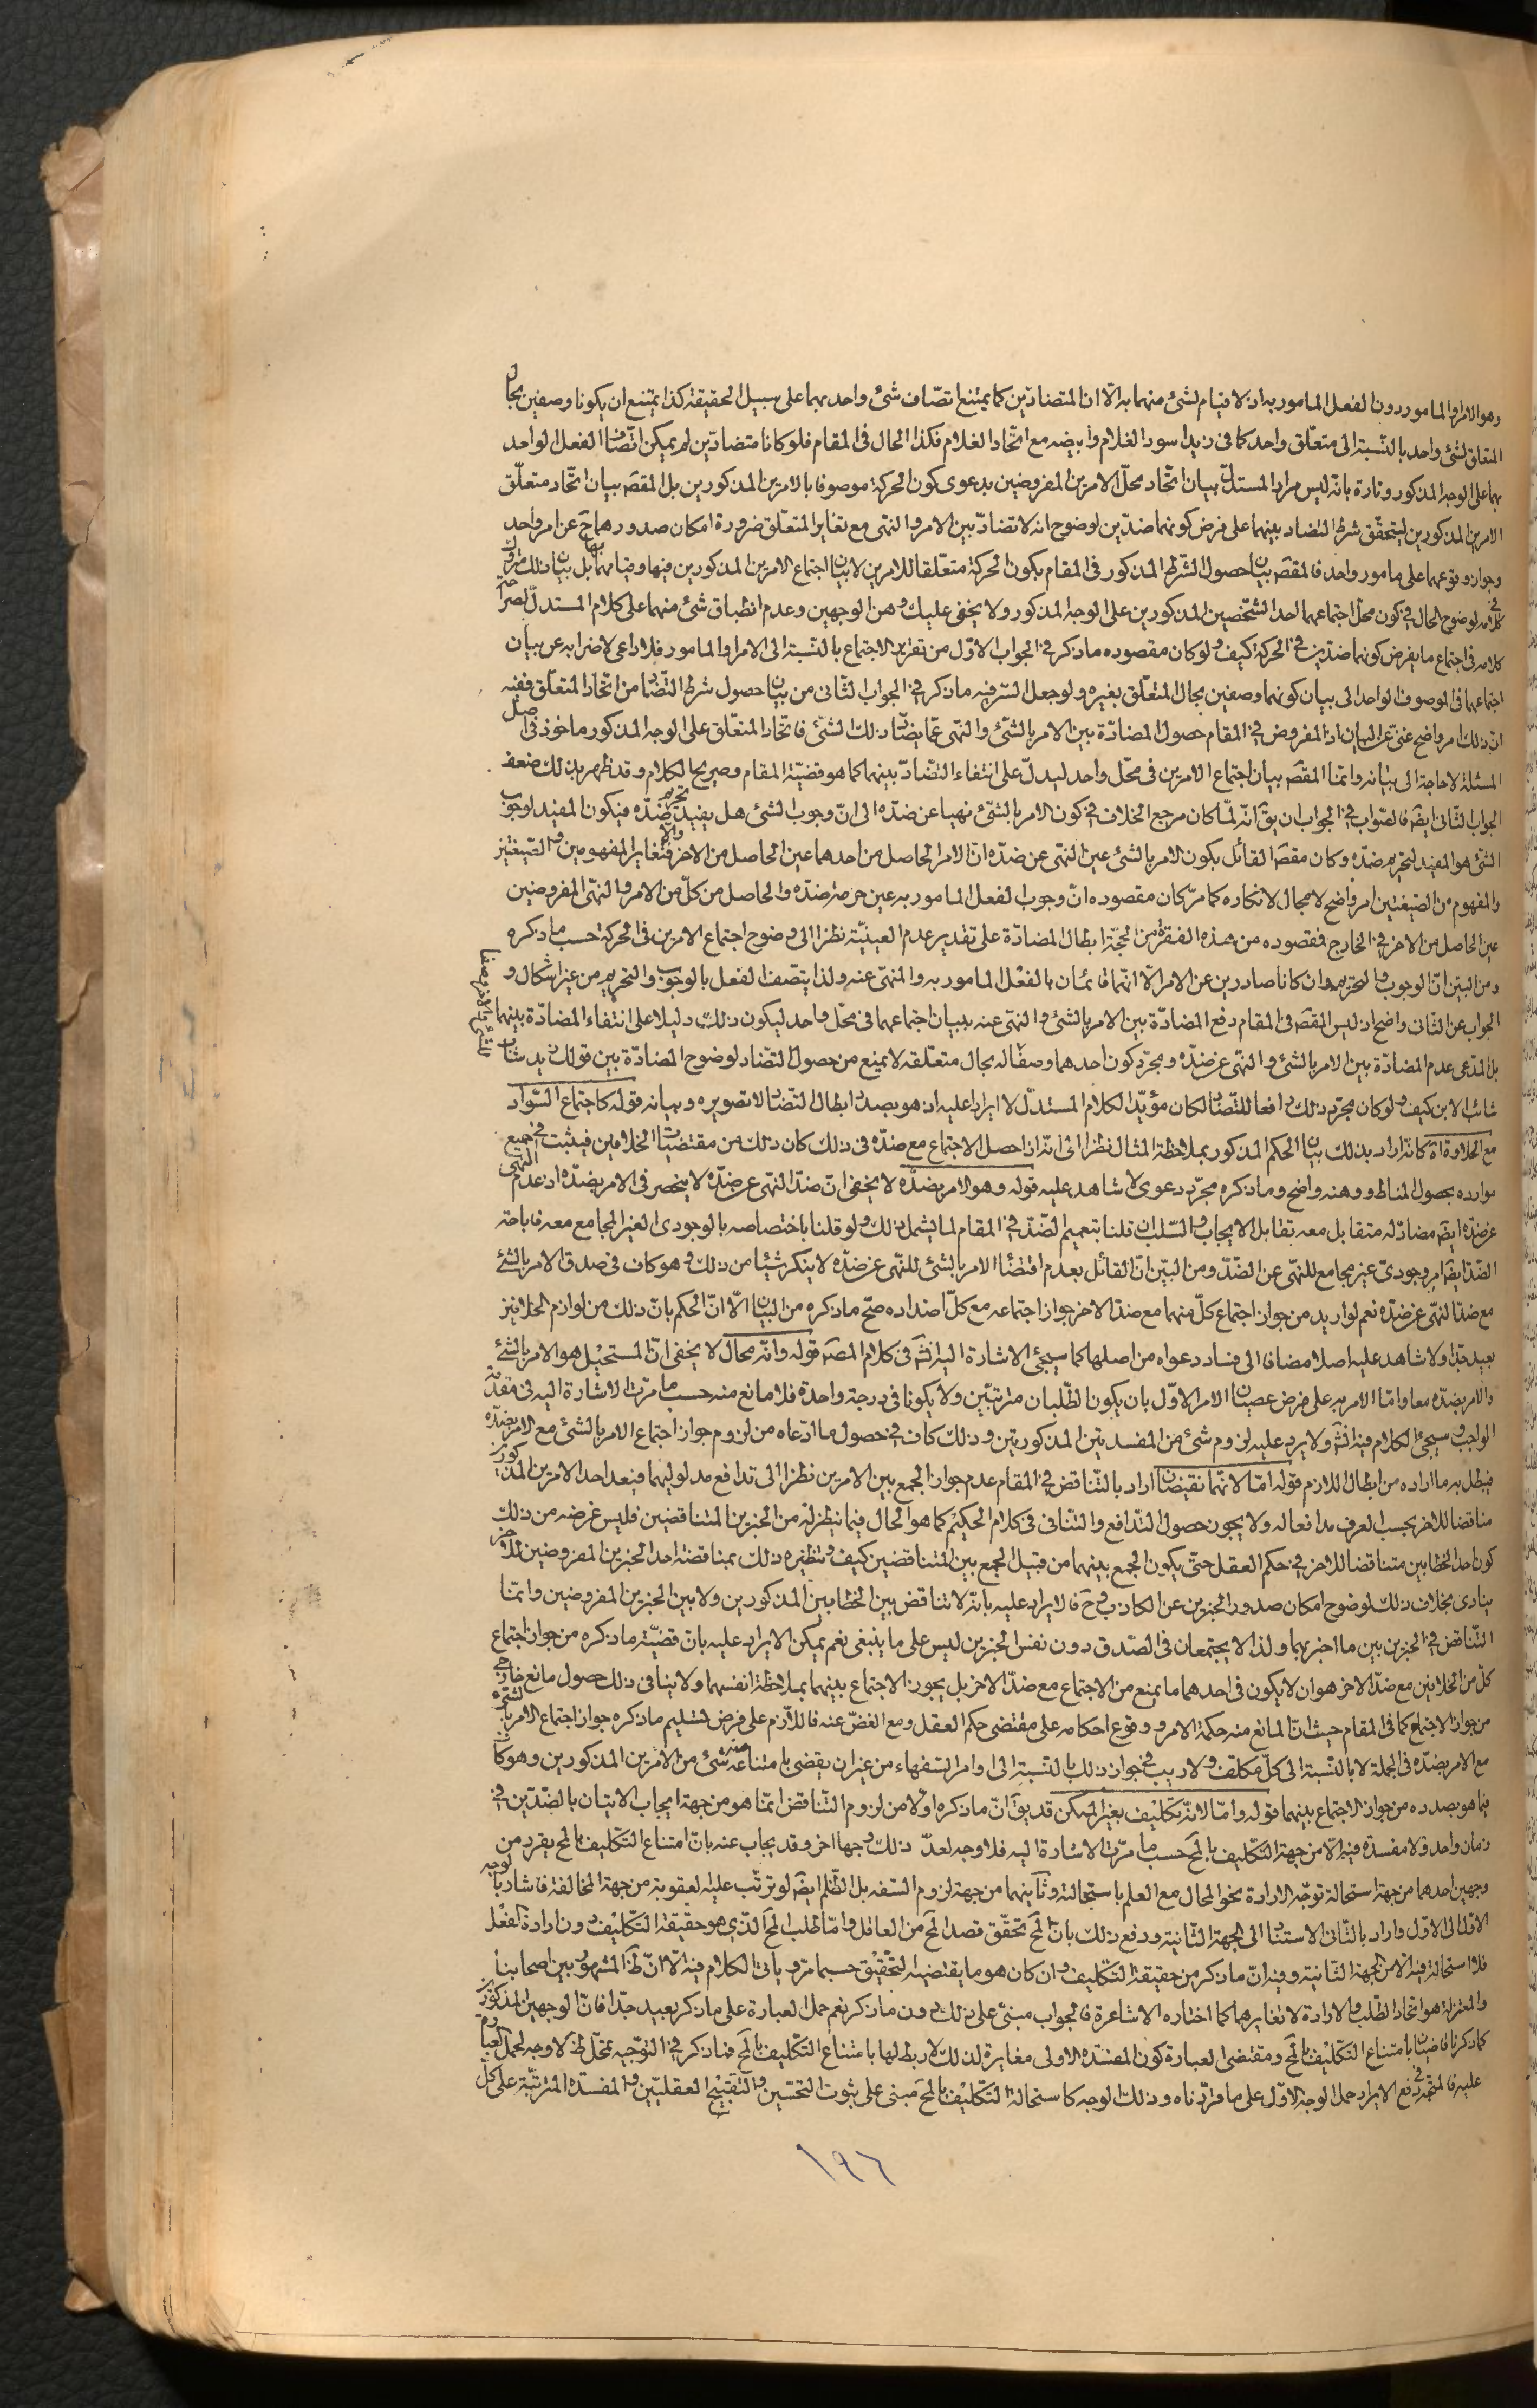 وهو الامر والمامور دون الفعل المامور به اذ لا قيام لشئ منهما به الّا ان المتضادّين كما يمتنع اتصّاف شئ واحد بهما على سبيل الحقيقة كذا يمتنع ان يكونا وصفين بحال
المتعلق لشئ واحد بالنّسبة الى متعلّق واحد كما فى زيد اسود الغلام وابيضه مع اتّحاد الغلام فكذا الحال فى المقام فلو كانا متضادّين لم يمكن اتّصاف الفعل الواحد
بهما على الوجه المذكور وتارة بانّه ليس مراد المستدلّ بيان اتّحاد محلّ الامرين المفروضين بدعوى كون الحركة موصوفا بالامرين المذكورين بل المقصَ بيان اتّحاد متعلّق
الامرين المذكورين ليتحقّق شرط التضاد بينهما على فرض كونهما ضدّين لوضوح انه لا تضادّ بين الامر والنهى مع تغاير المتعلّق ضرورة امكان صدورهما حَ عن امر واحد
وجواز وقوعهما على مامور واحد فالمقصَ بيان حصول الشّرط المذكور فى المقام بكون الحركة متعلّقا للامرين لا بيان اجتماع الامرين المذكورين فيها وقيامهما بها بل بيان ذلك متروك
فى كلامه لوضوح الحال فى كون محلّ اجتماعهما احد الشّخصين المذكورين على الوجه المذكور ولا يخفى عليك وهن الوجهين وعدم انطباق شئ منهما على كلام المستدلّ لصراحة
كلامه فى اجتماع ما يفرض كونهما ضدّين فى الحركة كيف ولو كان مقصوده ما ذكر فى الجواب الاوّل من تقرير الاجتماع بالنّسبة الى الامر والمامور فلا داعى لاضرابه عن بيان
اجتماعهما فى الموصوف الواحد الى بيان كونهما وصفين بحال المتعلّق بغيره ولو جعل السّر فيه ما ذكر فى الجواب الثّانى من بيان حصول شرط التّضاد من اتّحاد المتعلّق ففيه
انّ ذلك امر واضح غنىّ عن البيان اذ المفروض فى المقام حصول المضادّة بين الامر بالشّئ والنّهى عمّا يضادّ ذلك الشّئ فاتّحاد المتعلّق على الوجه المذكور ماخوذ فى اصل
المسئلة لا حاجة الى بيانه وانّما المقصَ بيان اجتماع الامرين فى محّل واحد ليدلّ على انتفاء التّضادّ بينهما كما هو قضيّة المقام وصريح الكلام وقد ظهر بذلك ضعف
الجواب الثّانى ايضَ فالصّواب فى الجواب ان يقَ انّه لمّا كان مرجع الخلاف فى كون الامر بالشّئ نهيا عن ضدّه الى انّ وجوب الشئ هل يفيد تحريم ضدّه فيكون المفيد لوجوب
الشّئ هو المفيد لتحريم ضدّه وكان مقصَ القائل بكون الامر بالشئ عين النّهى عن ضدّه انّ الامر الحاصل من احدهما عين الحاصل من الاخر والّا فتغاير المفهومين والصّيغتين
والمفهوم من الصّيغتين امر واضح لا مجال لانكاره كما مرّ كان مقصوده انّ وجوب الفعل المامور به عين حرمة ضدّه والحاصل من كلّ من الامر والنّهى المفروضين
عين الحاصل من الاخر فى الخارج فمقصوده من هذه الفقرة من الحجّة ابطال المضادّة على تقدير عدم العينيّة نظرا الى وضوح اجتماع الامرين فى الحركة حسب ما ذكره
ومن البيّن انّ الوجوب والتحريم وان كانا صادرين عن الامر الّا انّهما قائمان بالفعل المامور به والمنهىّ عنه ولذا يتّصف الفعل بالوجوب والتحريم من غير اشكال و
الجواب عن الثّانى واضح اذ ليس المقصَ فى المقام دفع المضادّة بين الامر بالشّئ والنّهى عنه ببيان اجتماعهما فى محّل واحد ليكون ذلك دليلا على انتفاء المضادّة بينهما
بل المدّعى عدم المضادّة بين الامر بالشّئ والنّهى عن ضدّه ومجرّد كون احدهما وصفا له بحال متعلّقه لا يمنع من حصول التضّاد لوضوح المضادّة بين قولك زيد شابّ
شائب الابن كيف ولو كان مجرّد ذلك دافعا للتضّاد لكان مؤيّدا لكلام المستدلّ لا ايرادا عليه اذ هو بصدد ابطال التّضّاد لا تصويره وبيانه قوله كاجتماع السّواد
مع الحلاوة اه كانّه اراد بذلك بيان الحكم المذكور بملاحظة المثال نظرا الى انّه اذا حصل الاجتماع مع ضدّه فى ذلك كان ذلك من مقتضيات الخلافين فيثبت فى جميع
موارده بحصول المناط ووهنه واضح وما ذكره مجرّد دعوى لا شاهد عليه قوله وهو الامر بضدّه لا يخفى انّ ضدّ النّهى عن ضدّه لا ينحصر فى الامر بضدّه اذ عدم النّهى
عن ضدّه ايضَ مضادّ له متقابل معه تقابل الايجاب والسّلب ان قلنا بتعميم الضّدّ فى المقام لما يشمل ذلك ولو قلنا باختصاصه بالوجودى الغير المجامع معه فاباحة
الضّد ايضَ امر وجودىّ غير مجامع للنّهى عن الضّدّ ومن البيّن انّ القائل بعدم اقتضاء الامر بالشئ للنّهى عن ضدّه لا ينكر شيئا من ذلك وهو كاف فى صدق الامر بالشّئ
مع ضدّ النّهى عن ضدّه نعم لو اريد من جواز اجتماع كلّ منهما مع ضدّ الاخر جواز اجتماعه مع كلّ اضداده صحّ ما ذكره من البيان الّا انّ الحكم بانّ ذلك من لوازم الخلافين
بعيد جدّا ولا شاهد عليه اصلا مضافا الى فساد دعواه من اصلها كما سيجئ الاشارة اليه انشَ فى كلام المصَ قوله وانّه محال لا يخفى انّ المستحيل هو الامر بالشّئ
والامر بضدّه معا وامّا الامر به على فرض عصيان الامر الاوّل بان يكون الطّلبان مترتّبين ولا يكونا فى درجة واحدة فلا مانع منه حسب ما مرّت الاشارة اليه فى مقدّمة
الواجب وسيجئ الكلام فيه انشَ ولا يرد عليه لزوم شئ من المفسدتين المذكورتين وذلك كاف فى حصول ما ادّعاه من لزوم جواز اجتماع الامر بالشئ مع الامر بضدّه
فيبطل به ما اراده من ابطال اللازم قوله امّا لانّهما نقيضان اراد بالتّناقض فى المقام عدم جواز الجمع بين الامرين نظرا الى تدافع مدلوليهما فيعد احد الامرين المذكورين
مناقضا للاخر بحسب العرف مدافعا له ولا يجوز حصول التدافع والتّنافى فى كلام الحكيم كما هو الحال فيما نظر له من الخبرين المتناقضين فليس غرضه من ذلك
كون احد الخطابين متناقضا للاخر فى حكم العقل حتّى يكون الجمع بينهما من قبيل الجمع بين المتناقضين كيف وتنظيره ذلك بمناقضة احد الخبرين المفروضين للاخر
ينادى بخلاف ذلك لوضوح امكان صدور الخبرين عن الكاذب وحَ فلا يرد عليه بانّه لا تناقض بين الخطابين المذكورين ولا بين الخبرين المفروضين وانّما
التّناقض فى الخبرين بين ما اخبر بهما ولذا لا يجتمعان فى الصّدق دون نفس الخبرين ليس على ما ينبغى نعم يمكن الايراد عليه بانّ قضيّة ما ذكره من جواز اجتماع
كلّ من الخلافين مع ضدّ الاخر هو ان لا يكون فى احدهما ما يمنع من الاجتماع مع ضدّ الاخر بل يجوز الاجتماع بينهما بملاحظة انفسهما ولا ينافى ذلك حصول مانع خارجى
من جواز الاجتماع كما فى المقام حيث انّ المانع منه حكمة الامر ووقوع احكامه على مقتضى حكم العقل ومع الغضّ عنه فاللّازم على فرض تسليم ما ذكره جواز اجتماع الامر بالشّئ
مع الامر بضدّه فى الجملة لا بالنّسبة الى كلّ مكلّف ولا ريب فى جواز ذلك بالنّسبة الى اوامر السّفهاء من غير ان يقضى بامتناعه شئ من الامرين المذكورين وهو كاف
فيما هو بصدده من جواز الاجتماع بينهما قوله وامّا لانّه تكليف بغير الممكن قد يقَ انّ ما ذكره اوّلا من لزوم التّناقض انّما هو من جهة ايجاب الاتيان بالضّدّين فى
زمان واحد ولا مفسدة فيه الّا من جهة التّكليف بالمحَ حسب ما مرّت الاشارة اليه فلا وجه لعدّ ذلك وجها اخر وقد يجاب عنه بانّ امتناع التّكليف بالمحَ يقرّر من
وجهين احدهما من جهة استحالة توجّه الارادة نحو المحال مع العلم باستحالته وثانيهما من جهة لزوم السّفه بل الظّلم ايضَ لو ترتّب عليه العقوبة من جهة المخالفة فاشار بالوجه
الاوّل الى الاوّل واراد بالثّانى الاستناد الى الجهة الثّانية ودفع ذلك بانّ المحَ تحقّق قصد المحَ من العاقل وامّا طلب المحَ الّذى هو حقيقة التّكليف دون ارادة الفعل
فلا استحالة فيه الّا من الجهة الثّانية وفيه انّ ما ذكر من حقيقة التّكليف وان كان هو ما يقتضيه التّحقيق حسبما مرّ وياتى الكلام فيه الّا انّ الظّ المشهور بين اصحابنا
والمعتزلة هو اتحاد الطّلب والارادة لا تغايرهما كما اختاره الاشاعرة فالجواب مبنىّ على ذلك دون ما ذكر نعم حمل العبارة على ما ذكر بعيد جدّا فانّ الوجهين المذكورين
كما ذكرنا قاضيان بامتناع التّكليف بالمحَ ومقتضى العبارة كون المفسدة الاولى مغايرة لذلك لا ربط لها بامتناع التّكليف بالمحَ فما ذكر فى التّوجيه تمحّل لا وجه لحمل العبارة
عليه فالمتّجه فى دفع الايراد حمل الوجه الاوّل على ما قرّرناه وذلك الوجه كاستحالة التّكليف بالمحَ مبنى على ثبوت التحسين والتّقبيح العقليّين والمفسدة المترتّبة على كلّ
١٩٦